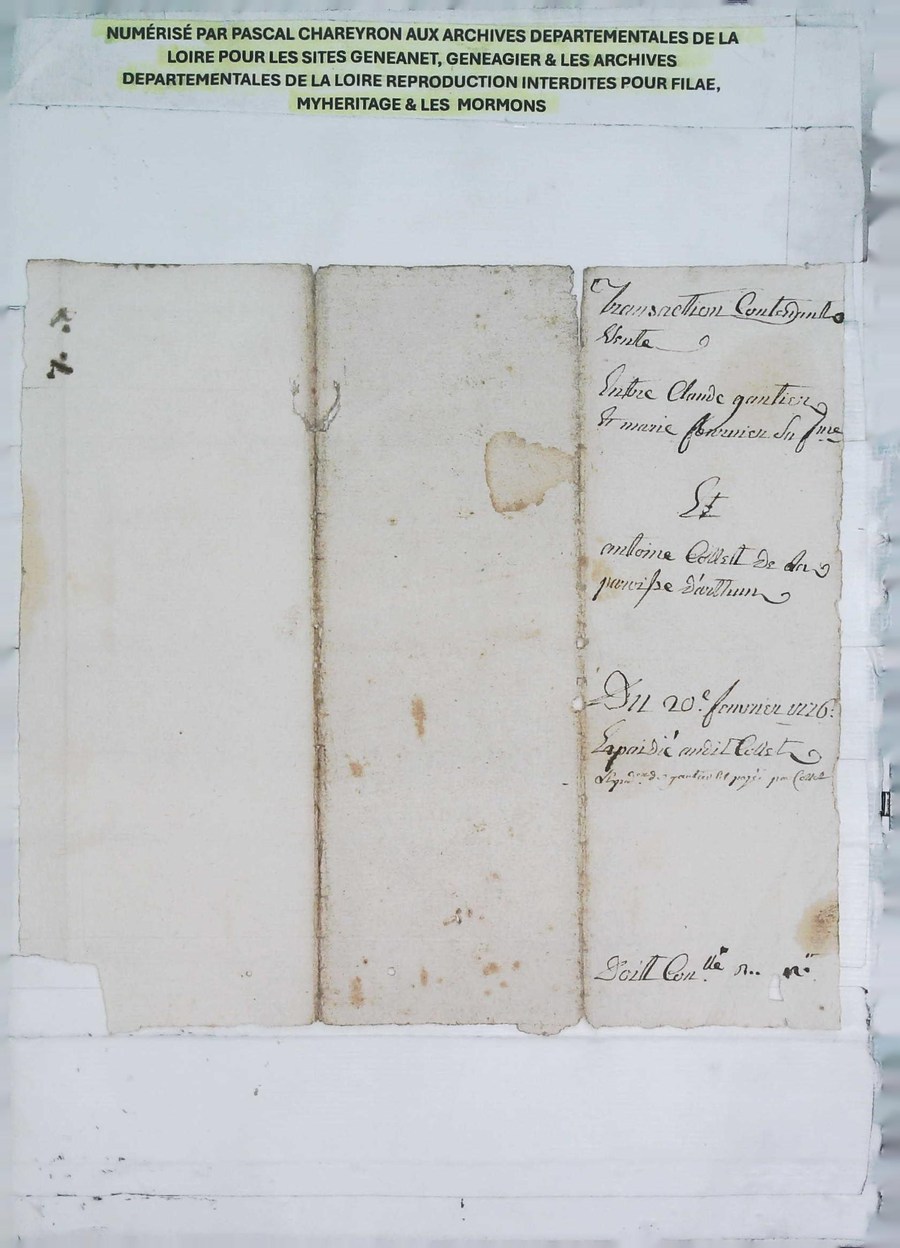 NUMÉRISÉ PAR PASCAL CHAREYRON AUX ARCHIVES DEPARTEMENTALES DE LA
LOIRE POUR LES SITES GENEANET, GENEAGIER & LES ARCHIVES
DEPARTEMENTALES DE LA LOIRE REPRODUCTION INTERDITES POUR FILAE,
MYHERITAGE & LES MORMONS
Transaction Contenant
Vente
Entre Claude gautier
Et marie fournier sa fme
Et
antoine Collet de la
paroisse d'arthun
Du 20e. fevrier
Expedié audit Collet
gautier et payé par Collet
Doitt Conlle